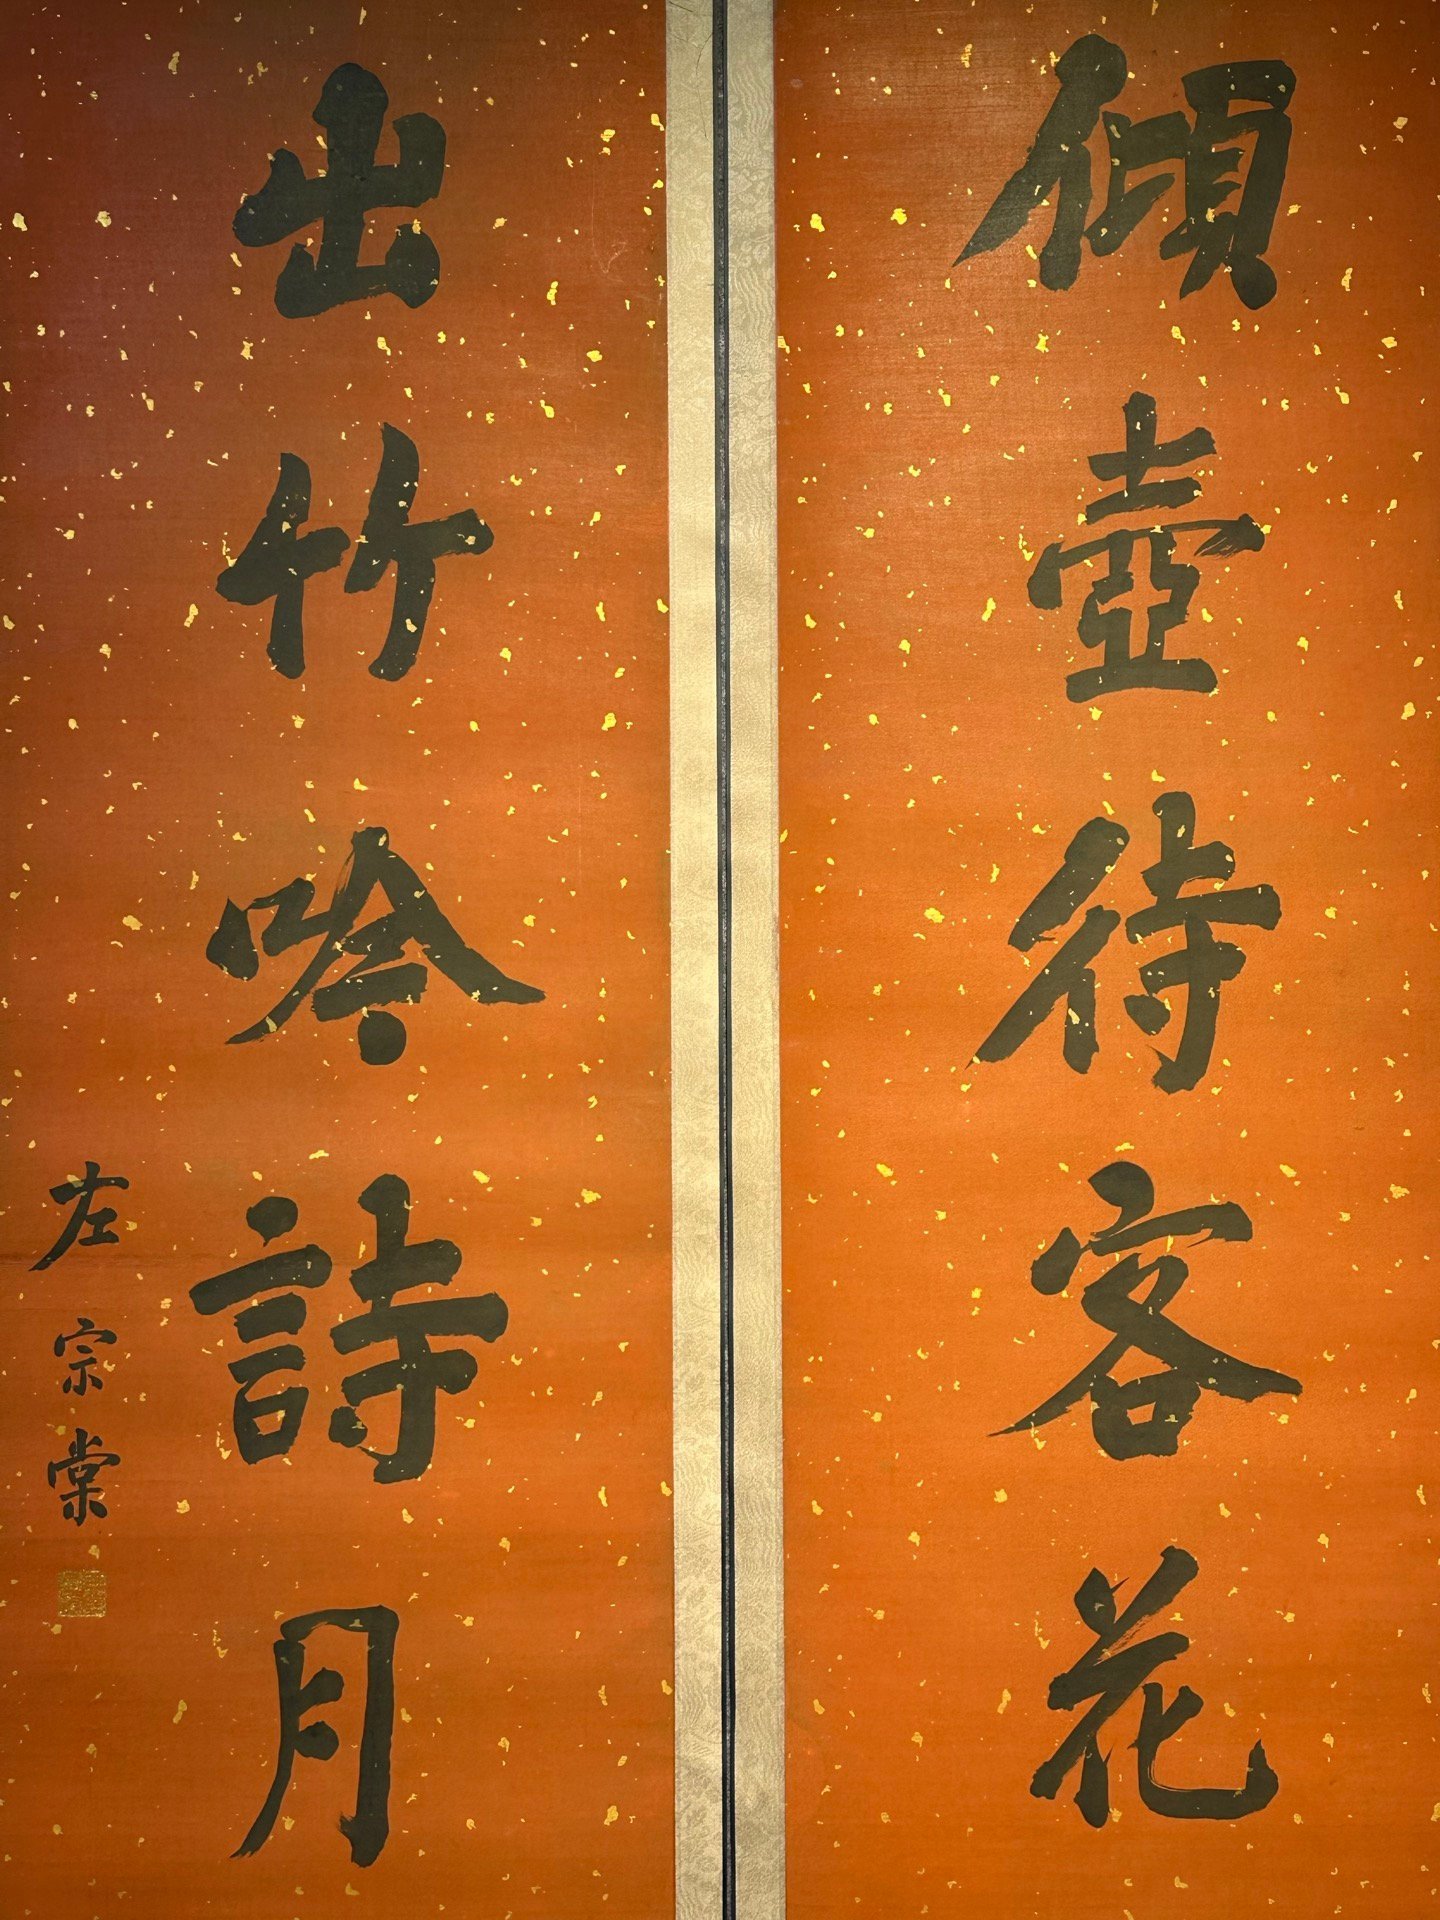 傾壺待客花
出竹吟詩月
左宗棠